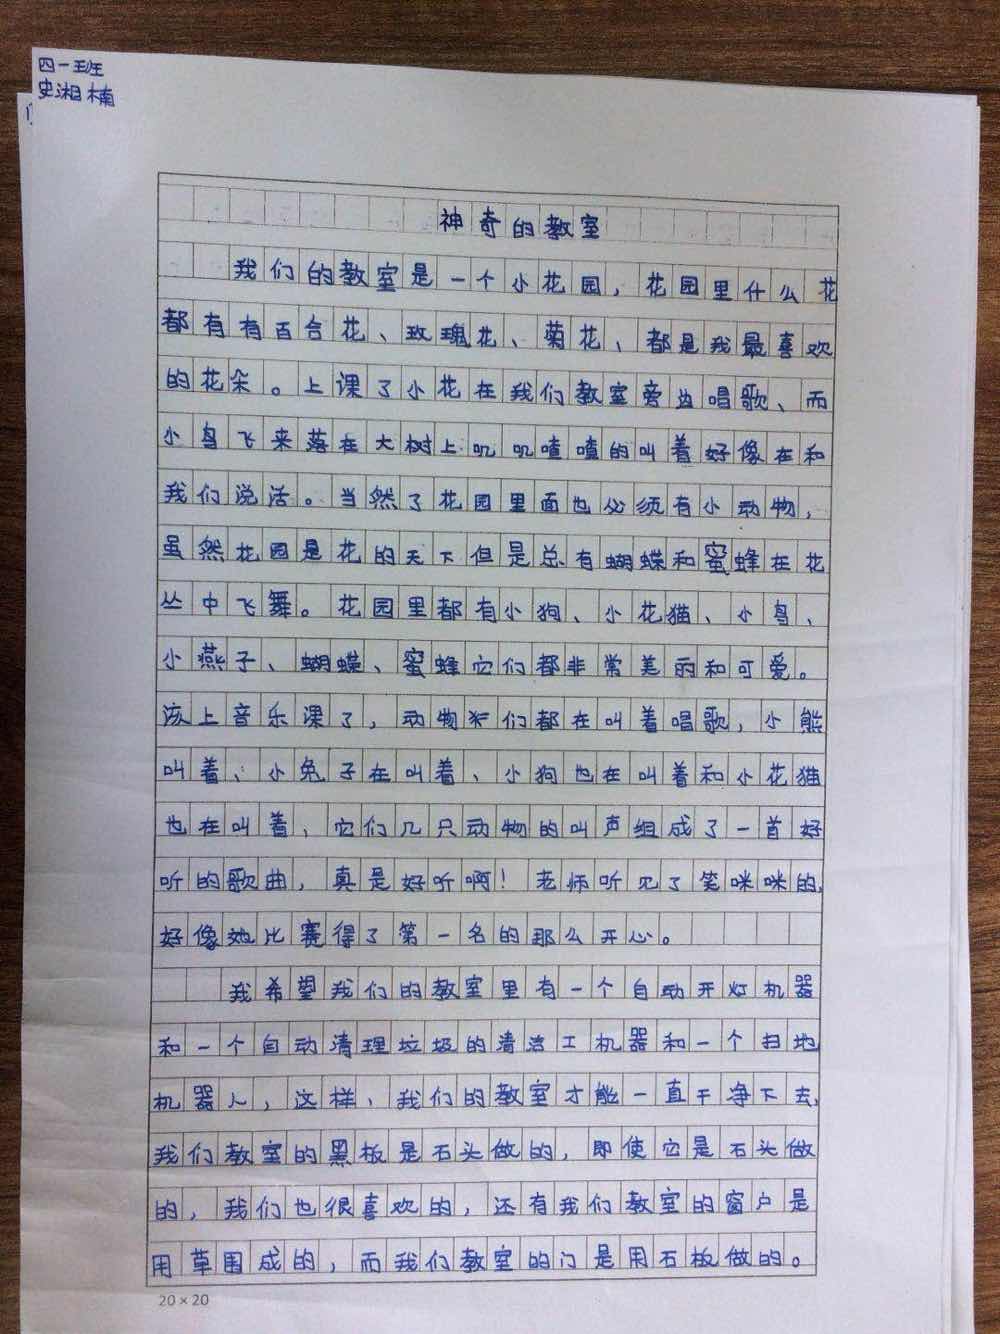 四一班
史湘楠
神奇的教室
我们的教室是一个小花园，花园里什么花
都有有百合花、玫瑰花、菊花、都是我最喜欢
的花朵。上课了小花在我们教室旁边唱歌、而
小鸟飞来落在大树上叽叽喳喳的叫着好像在和
我们说活。当然了花园里面也必须有小动物，
虽然花园是花的天下但是总有蝴蝶和蜜蜂在花
丛中飞舞。花园里都有小狗、小花猫、小鸟、
小燕子、蝴蝶、蜜蜂它们都非常美丽和可爱。
该上音乐课了，动物们都在叫着唱歌，小熊
叫着、小兔子在叫着、小狗也在叫着和小花猫
也在叫着、它们几只动物的叫声组成了一首好
听的歌曲，真是好听啊！老师听见了笑咪咪的，
好像她比赛得了第一名的那么开心。
我希望我们的教室里有一个自动开灯机器
和一个自动清理垃圾的清洁工机器和一个扫地
机器人，这样、我们的教室才能一直干净下去，
我们教室的黑板是石头做的，即使它是石头做
的，我们也很喜欢的，还有我们教室的窗户是
用草围成的，而我们教室的门是用石板做的。
20×20